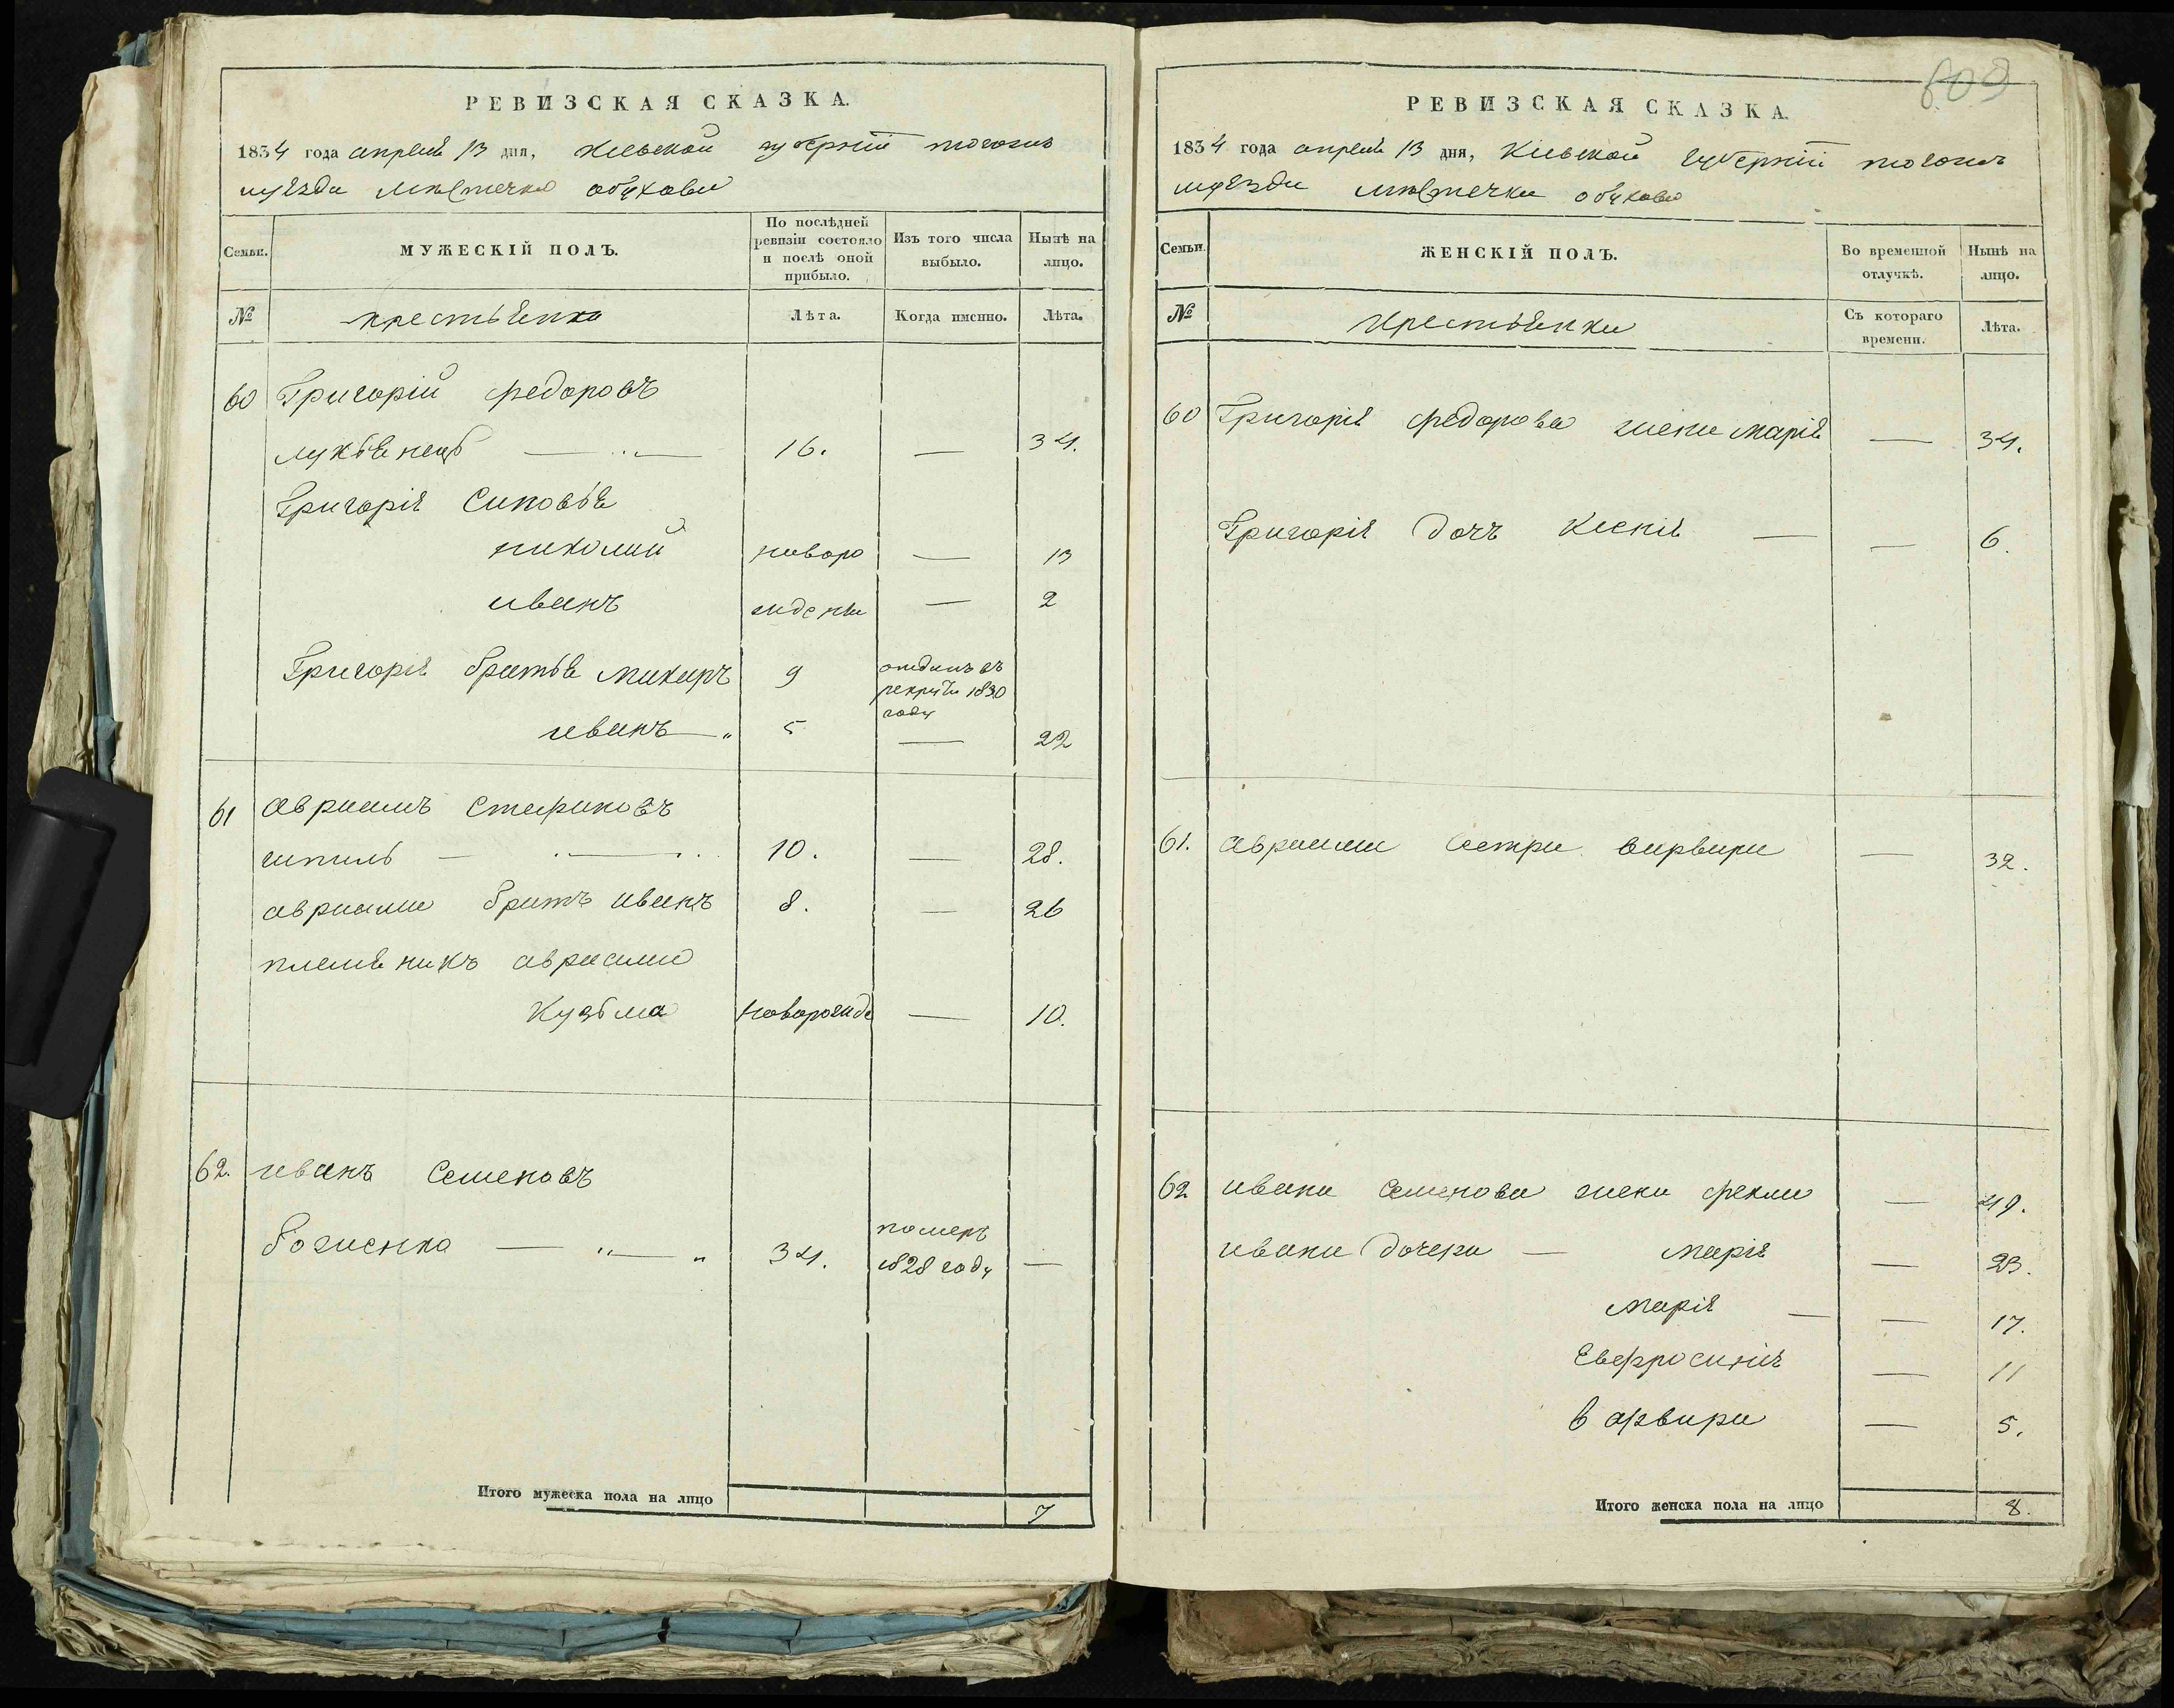 РЕВИЗСКАЯ СКАЗКА.
1834 года апреля 13 дня, Киевской губернии тогожъ
уезда местечка обухова
Семьи.
МУЖЕСКІЙ ПОЛЪ.
По послѣдней ревизіи состояло и послѣ оной прибыло.
Изъ того числа выбыло.
Нынѣ на лицо.
№
крестьяне
Лѣта.
Когда именно.
Лѣта.
60 Григорій федоровъ
лукьянецъ — 16. — 34.
Григорія Синовья
николай новоро — 13
иванъ жденни — 2
Григорія братья макаръ 9 отданъ въ рекруты 1830 году
иванъ — 5 — 22
61 авраамъ стефановъ
шпиль — 10. — 28.
авраама братъ иванъ 8. — 26
племяникъ авраама
Кузьма новорожде — 10.
62. иванъ Семеновъ
боженко — 34. померъ 1828 году —
Итого мужеска пола на лицо 7
609
РЕВИЗСКАЯ СКАЗКА.
1834 года апреля 13 дня, Кіевской губерніи тогожъ
уезда местечка обухова
Семьи.
ЖЕНСКІЙ ПОЛЪ.
Во временной отлучкѣ.
Нынѣ на лицо.
№
крестьянки
Съ котораго времени.
Лѣта.
60 Григорія федорова жена марія — 34.
Григорія дочъ Ксенія — — 6.
61. авраама сестра варвара — 32.
62 ивана семенова жена фекла — 49.
ивана дочери — марія — 23.
марія — — 17.
Евфросинія — 11
варвара — 5.
Итого женска пола на лицо 8.